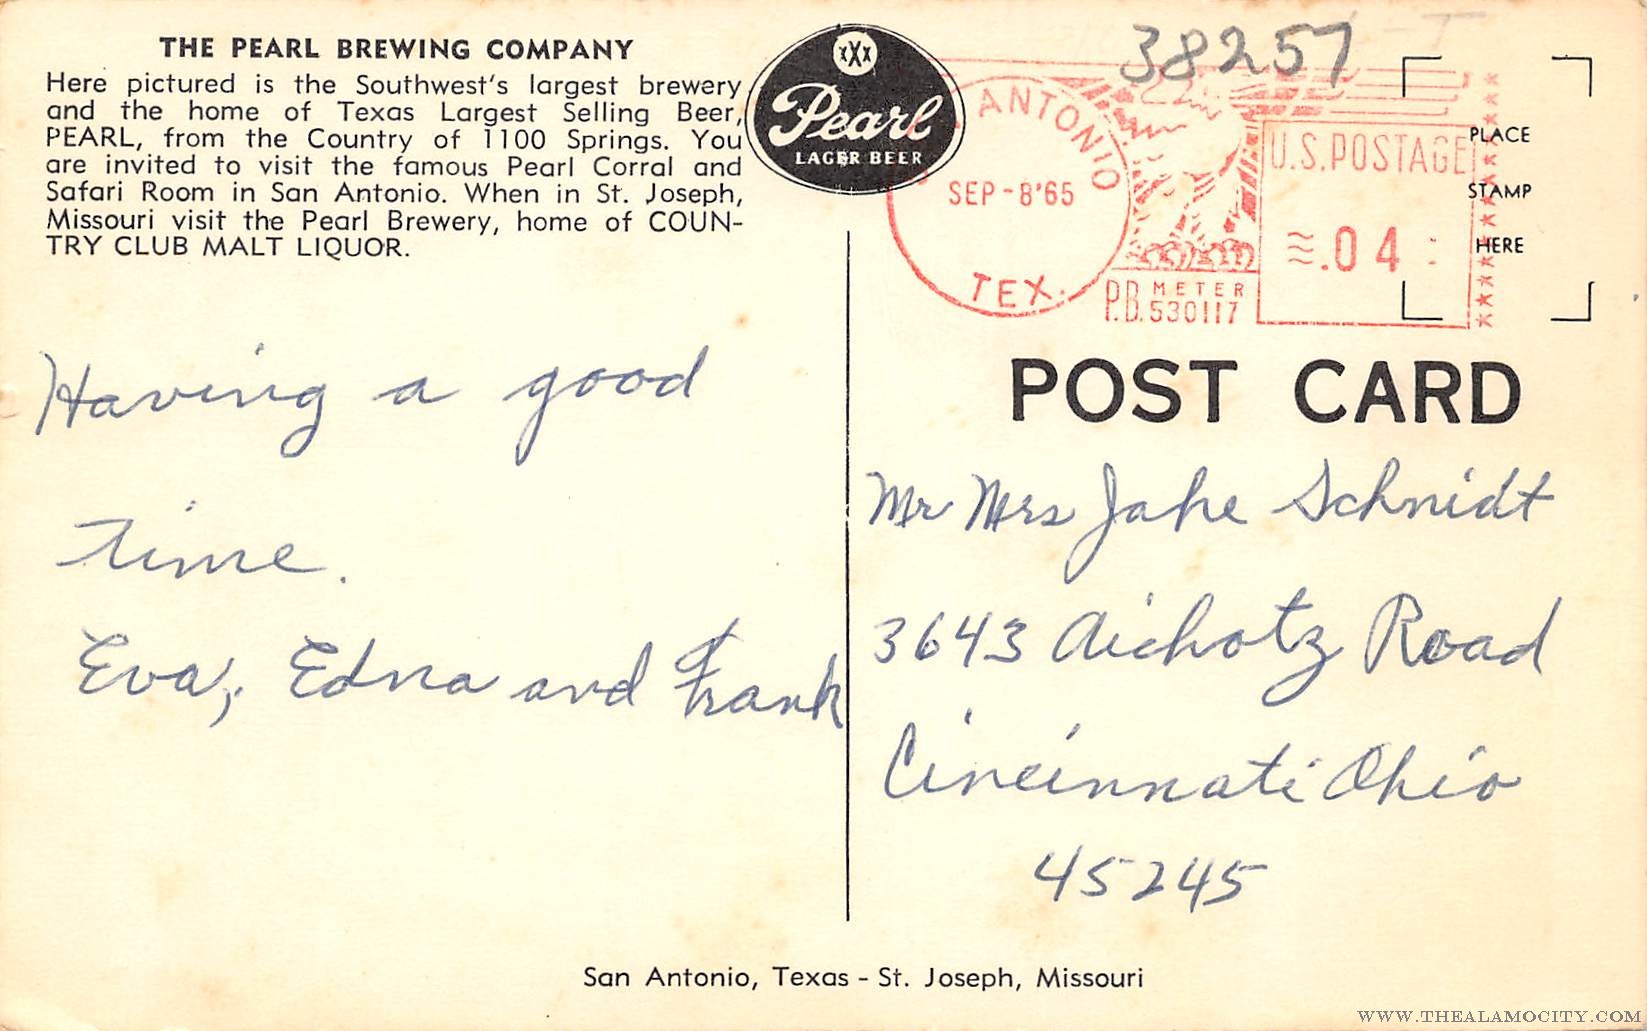 THE PEARL BREWING COMPANY
Here pictured is the Southwest's largest brewery
and the home of Texas Largest Selling Beer,
PEARL, from the Country of 1100 Springs. You
are invited to visit the famous Pearl Corral and
Safari Room in San Antonio. When in St. Joseph,
Missouri visit the Pearl Brewery, home of COUN-
TRY CLUB MALT LIQUOR.
XXX
Pearl
LAGER BEER
38257
ANTONIO
SEP-8'65
TEX.
P.B. METER
530117
U.S. POSTAGE
.04
PLACE
STAMP
HERE
Having a good
time.
Eva, Edna and Frank
POST CARD
Mr Mrs Jake Schnidt
3643 Aichotz Road
Cincinnati Ohio
45245
San Antonio, Texas - St. Joseph, Missouri
WWW.THEALAMOCITY.COM